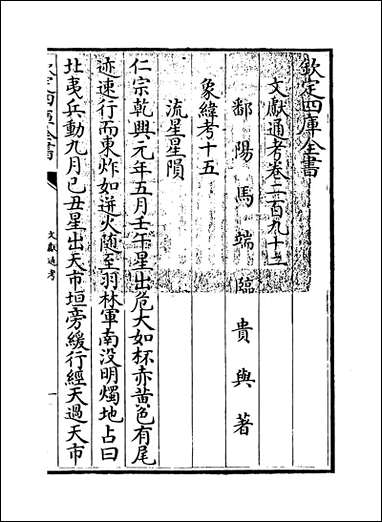 欽定四庫全書
文獻通考卷二百九十二
鄱陽馬端臨貴與著
象緯考十五
流星星隕
仁宗乾興元年五月壬午星出危大如杯赤黃色有尾
迹速行而東炸如迸火隨至羽林軍南没明燭地占曰
北夷兵動九月己丑星出天市垣旁緩行經天過天市
欽定四庫全書
文獻通考
一